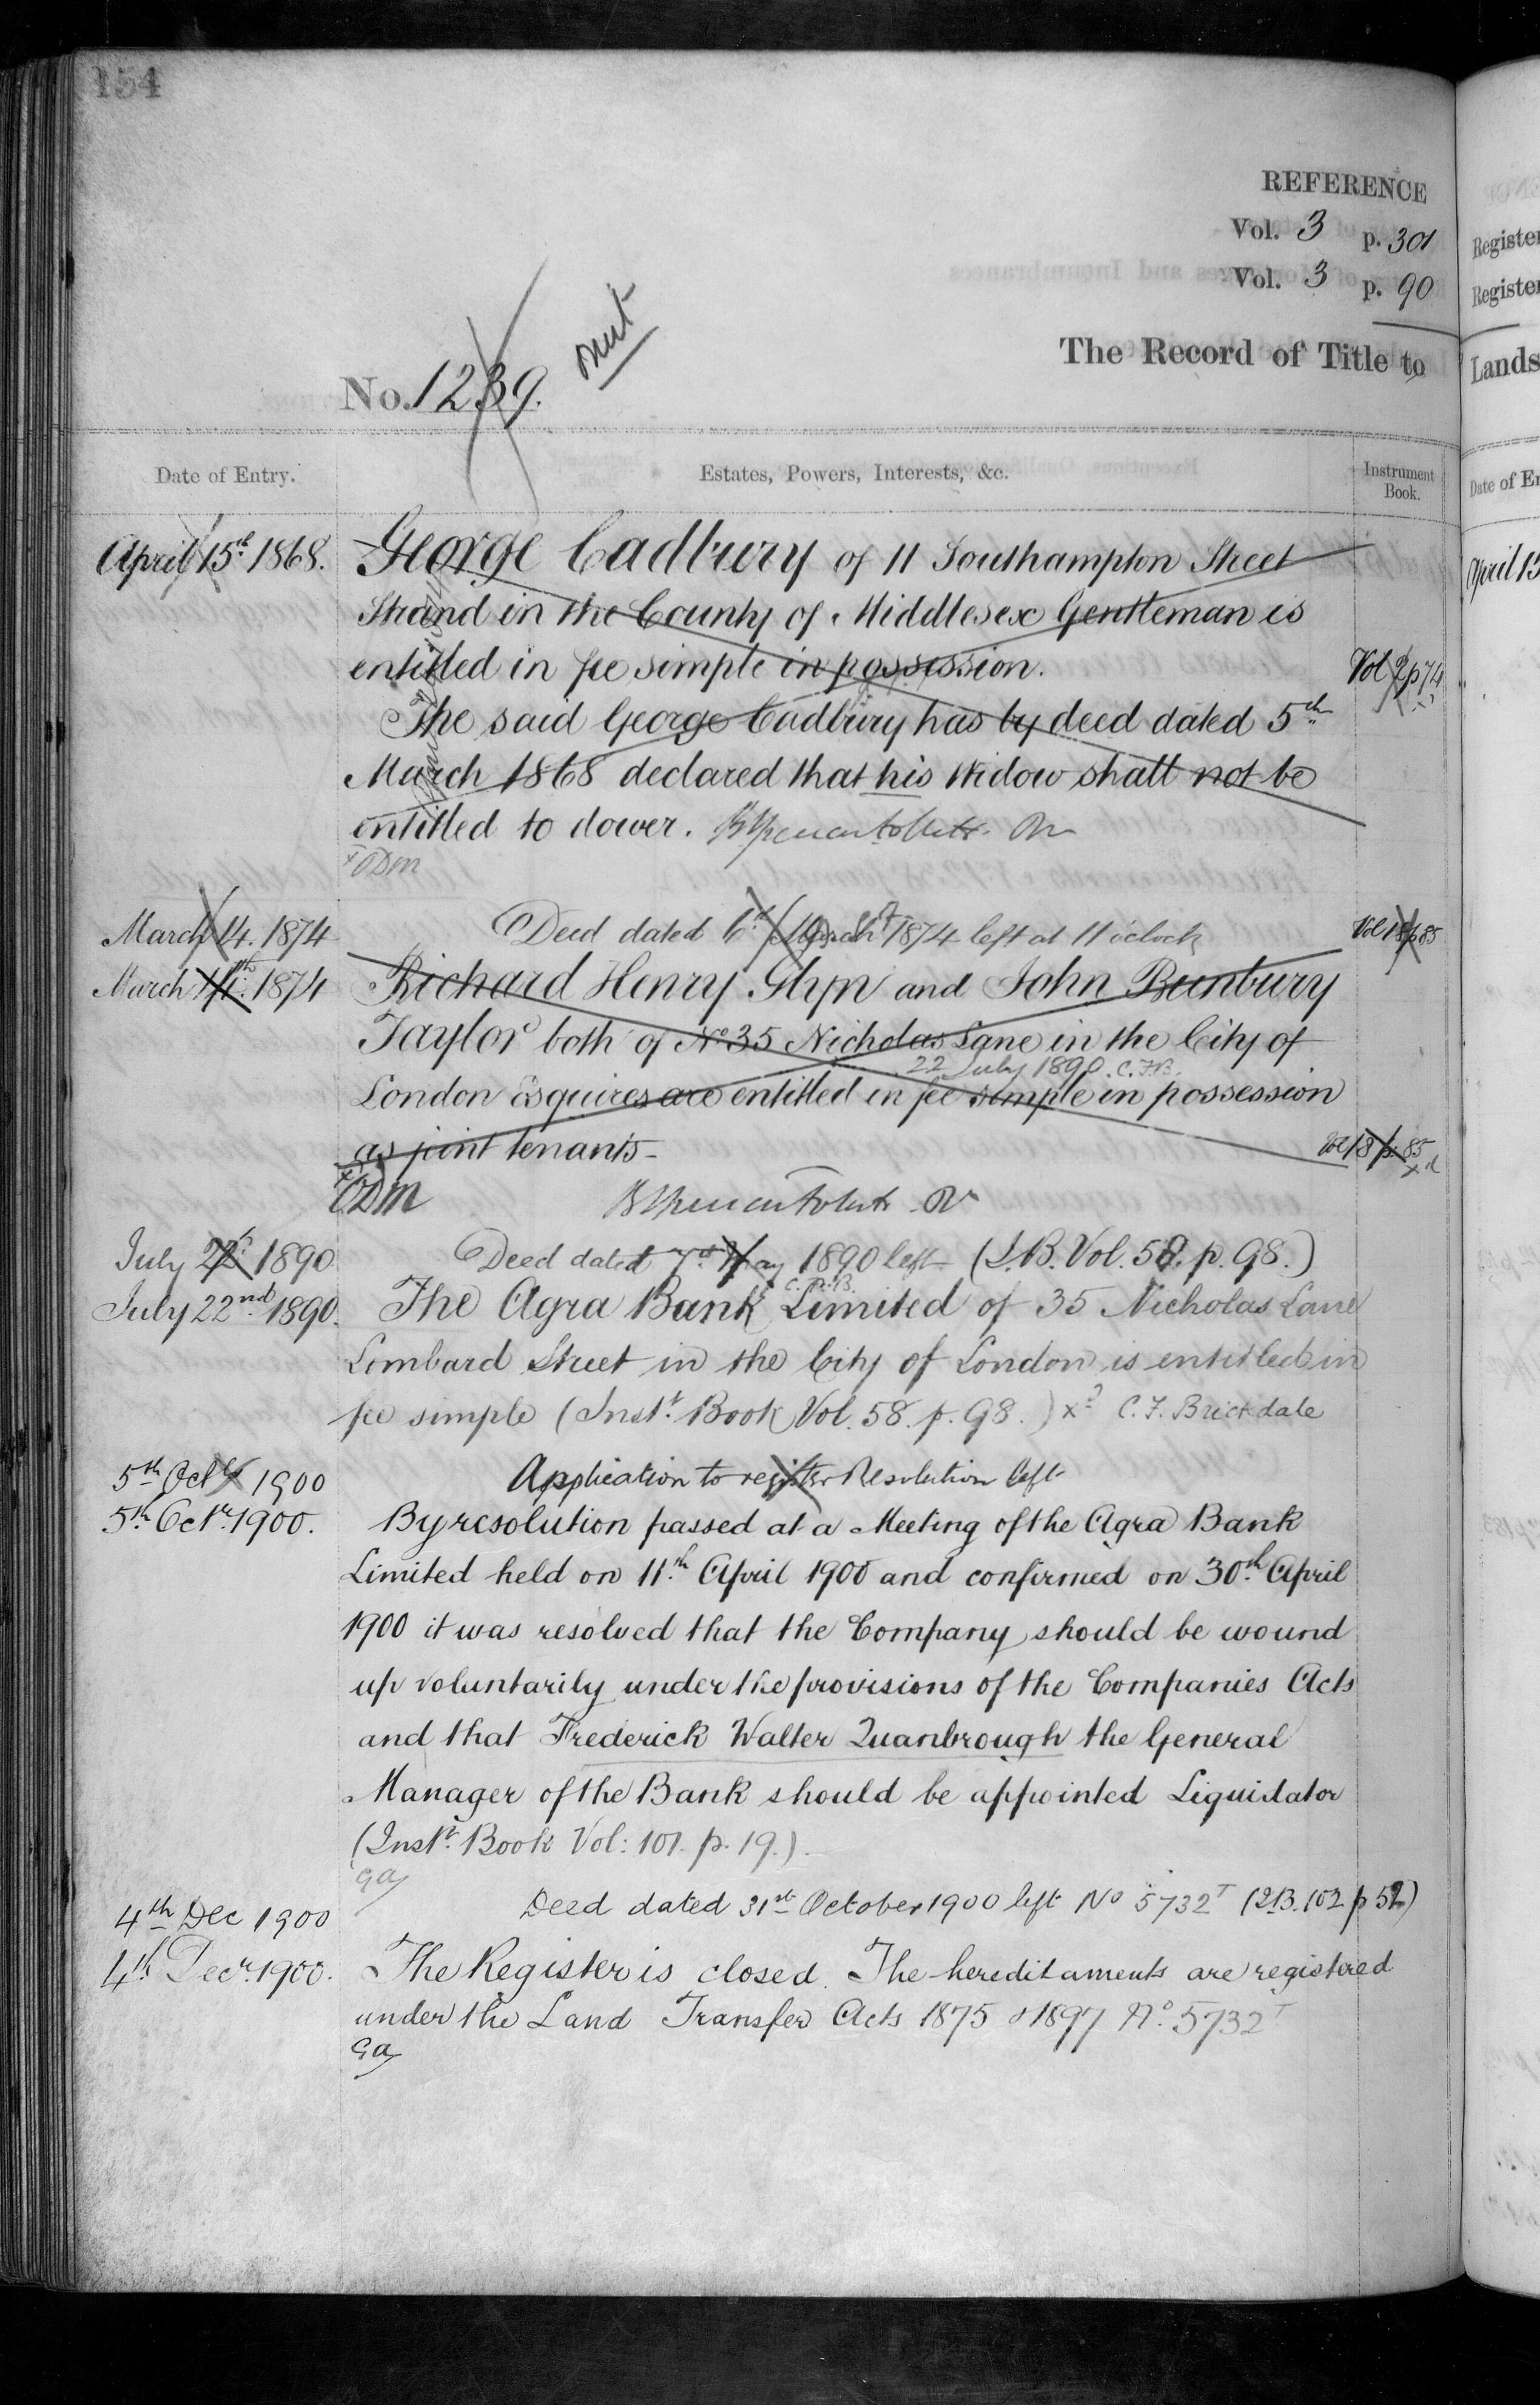 154
REFERENCE
Vol. 3 p. 301
Vol. 3 p. 90
The Record of Title to
No. 1239.
Date of Entry.
Estates, Powers, Interests, &c.
Instrument Book.
April 15th 1868. George Cadbury of 11 Southampton Street
Strand in the County of Middlesex Gentleman is
entitled in fee simple in possession.
The said George Cadbury has by deed dated 5th
March 1868 declared that his Widow shall not be
entitled to dower.
ODM
March 14. 1874 Deed dated 6th March 1874 left at 11 o'clock Vol 18 p 85
March 14th. 1874 Richard Henry Glyn and John Bunbury
Taylor both of No 35 Nicholas Lane in the City of
22 July 1890. C.F.B.
London Esquires are entitled in fee simple in possession
as joint tenants Vol 18 p. 85
ODM
July 22d 1890 Deed dated 7th May 1890 left (I.B. Vol. 58. p. 98.)
July 22nd 1890. The Agra Bank Limited of 35 Nicholas Lane
Lombard Street in the City of London is entitled in
fee simple (Instt. Book Vol. 58. p. 98.) xd C. F. Brickdale
5th Octr 1900 Application to register Resolution left
5th Octr. 1900. By resolution passed at a Meeting of the Agra Bank
Limited held on 11th April 1900 and confirmed on 30th April
1900 it was resolved that the Company should be wound
up voluntarily under the provisions of the Companies Acts
and that Frederick Walter Quanbrough the General
Manager of the Bank should be appointed Liquidator
(Instt. Book Vol: 101. p. 19.)
4th Dec 1900 Deed dated 31st October 1900 left No 5732T (I.B. 102 p 52)
4th Decr. 1900. The Register is closed. The hereditaments are registered
under the Land Transfer Acts 1875 & 1897 No. 5732T
Register
Register
Lands
Date of En
April 15